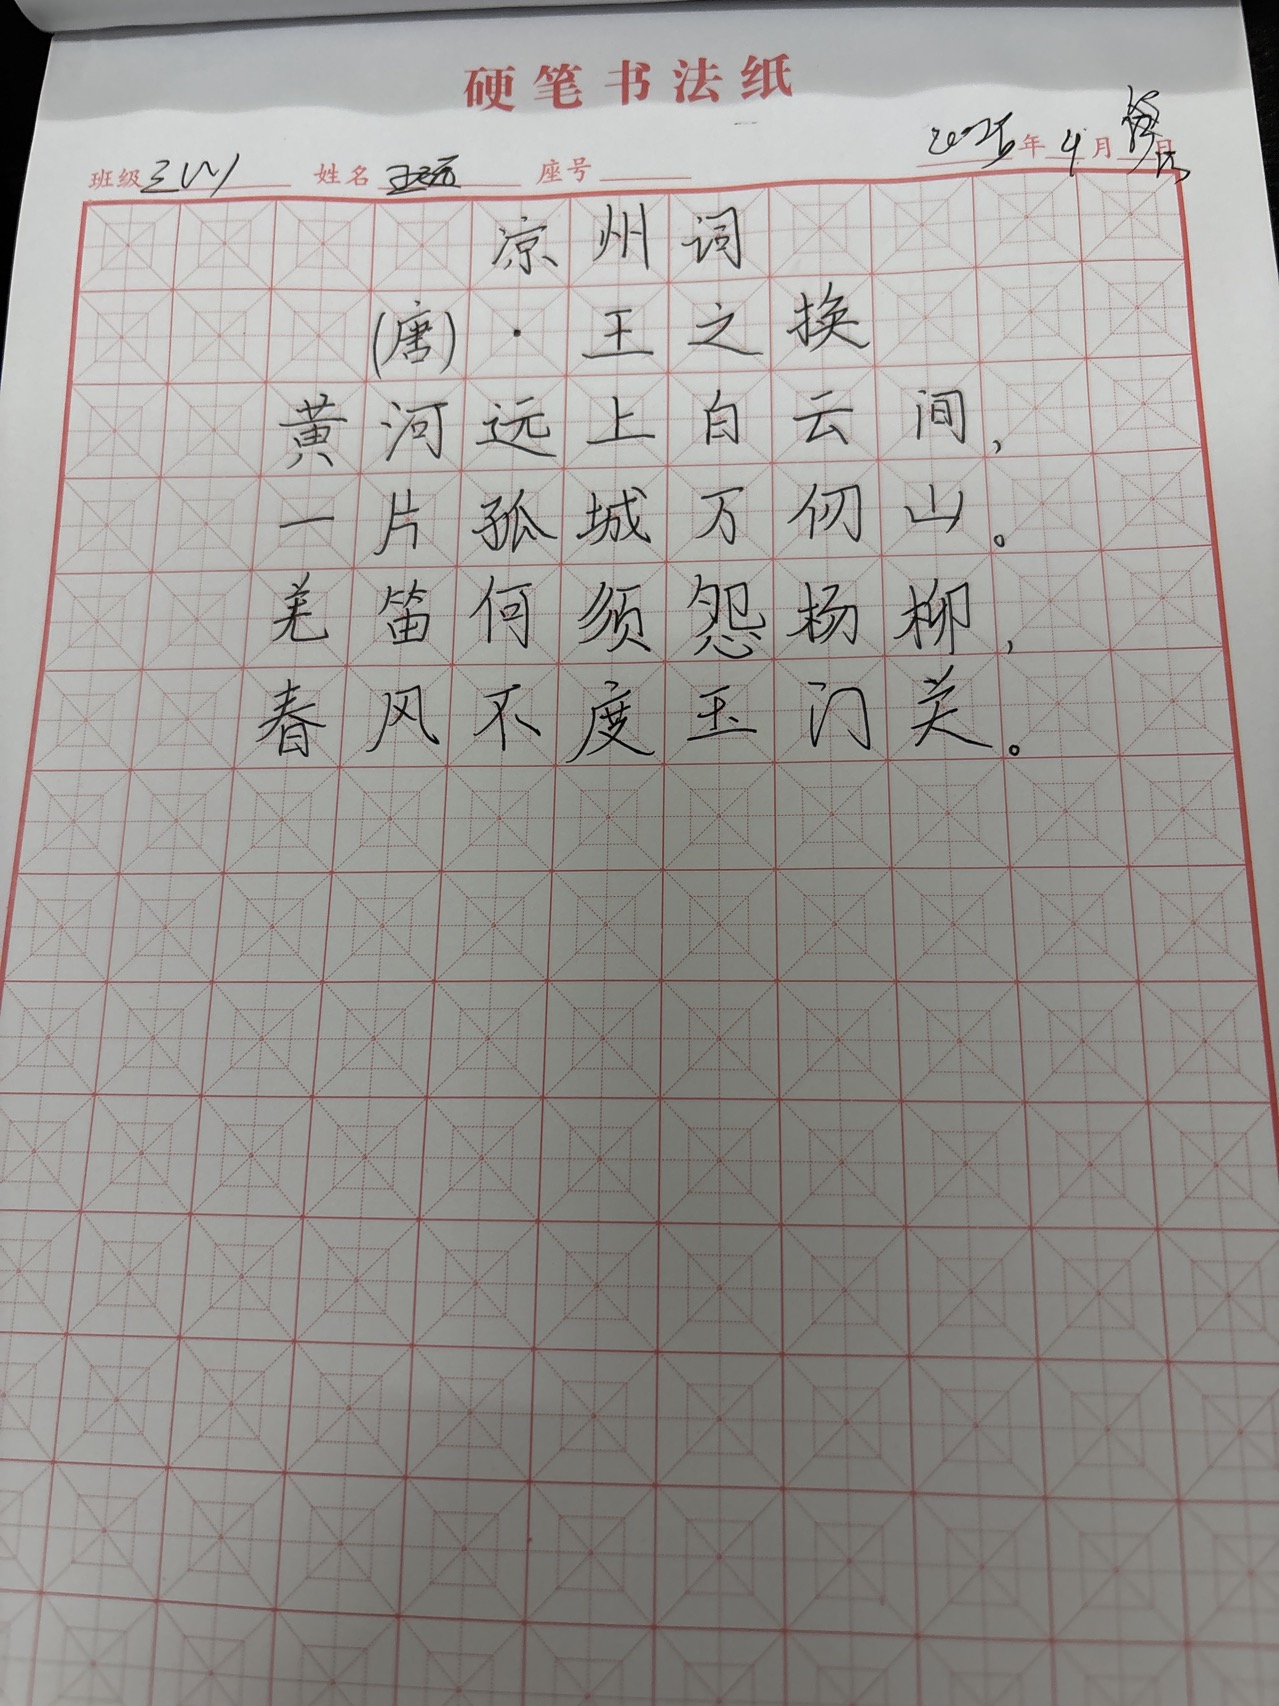 硬笔书法纸
班级 三(1) 姓名 王远 座号 2025年 4月 日
凉州词
(唐)·王之换
黄河远上白云间,
一片孤城万仞山。
羌笛何须怨杨柳,
春风不度玉门关。